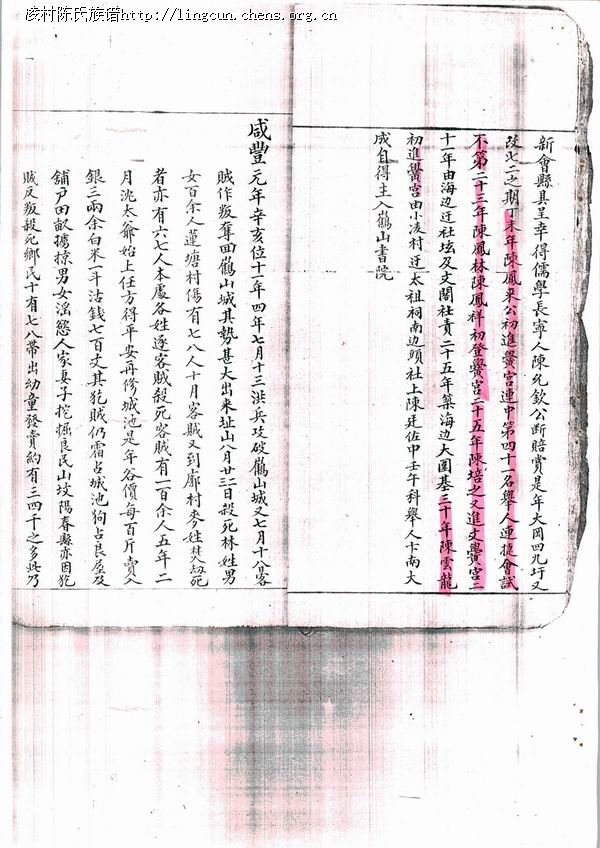 凌村陈氏族谱http://lingcun.chens.org.cn
新會縣具呈幸得儒學長寧人陳允欽公断賠賞是年大岡四九圩又
改七二之期丁未年陳鳳來公初進黌宮連中第四十一名舉人連捷會試
不第二十三年陳鳳林陳鳳祥初登黌宮二十五年陳培之又進文黌宮二
十一年由海边迁社坛及文閣社責二十五年築海边大圍基三十年陳雲龍
初進黌宮由小凌村迁太祖祠南边頭社上陳廷佐中壬午科舉人卞南大
成自得主入鶴山書院
咸豐元年辛亥位十一年四年七月十三洪兵攻破鶴山城又七月十八客
賊作叛奪回鶴山城其勢甚大出来址山八月廿二日殺死林姓男
女百余人蓮塘村傷有七八人十月客賊又到廓村麥姓焚劫死
者亦有六七人本處各姓逐客賊殺死客賊有一百余人五年二
月沈太爺始上任方得平安再修城池是年谷價每百斤賣入
銀三兩余白米一斗沽錢七百丈其犵賊仍霸占城池狗占良屋及
舖户田畝擄掠男女滛慾人家妻子挖掘良民山坟陽春縣亦因犵
賊反叛殺死鄉民十有七八帶出幼童發賣約有三四千之多此乃